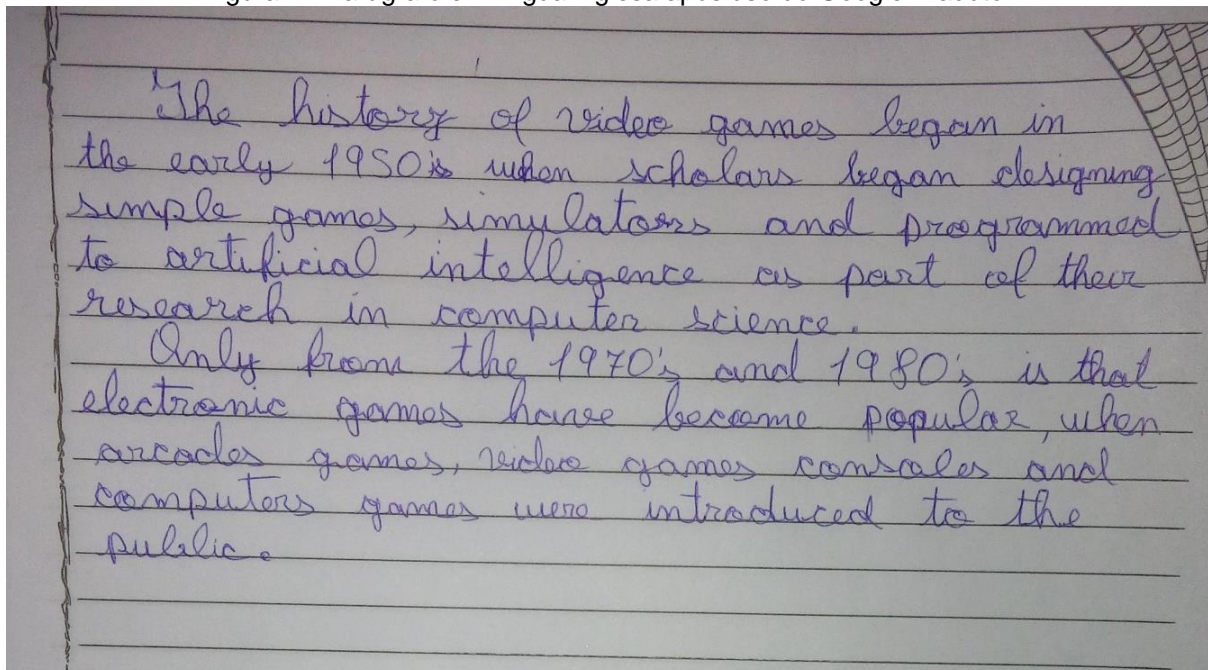 The history of video games began in
the early 1950's when scholars began designing
simple games, simulators and programmed
to artificial intelligence as part of their
research in computer science.
Only from the 1970's and 1980's is that
electronic games have become popular, when
arcades games, video games consoles and
computers games were introduced to the
public.